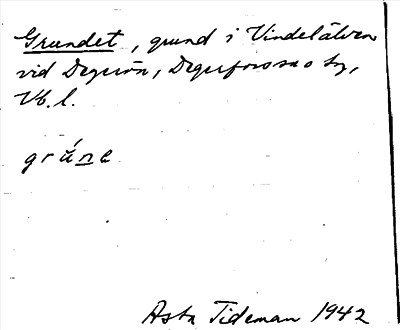 Grundet, grund i Vindelälven
vid Degerön, Degerfors sn o by,
Vb. l.
grúne
Asta Tideman 1942